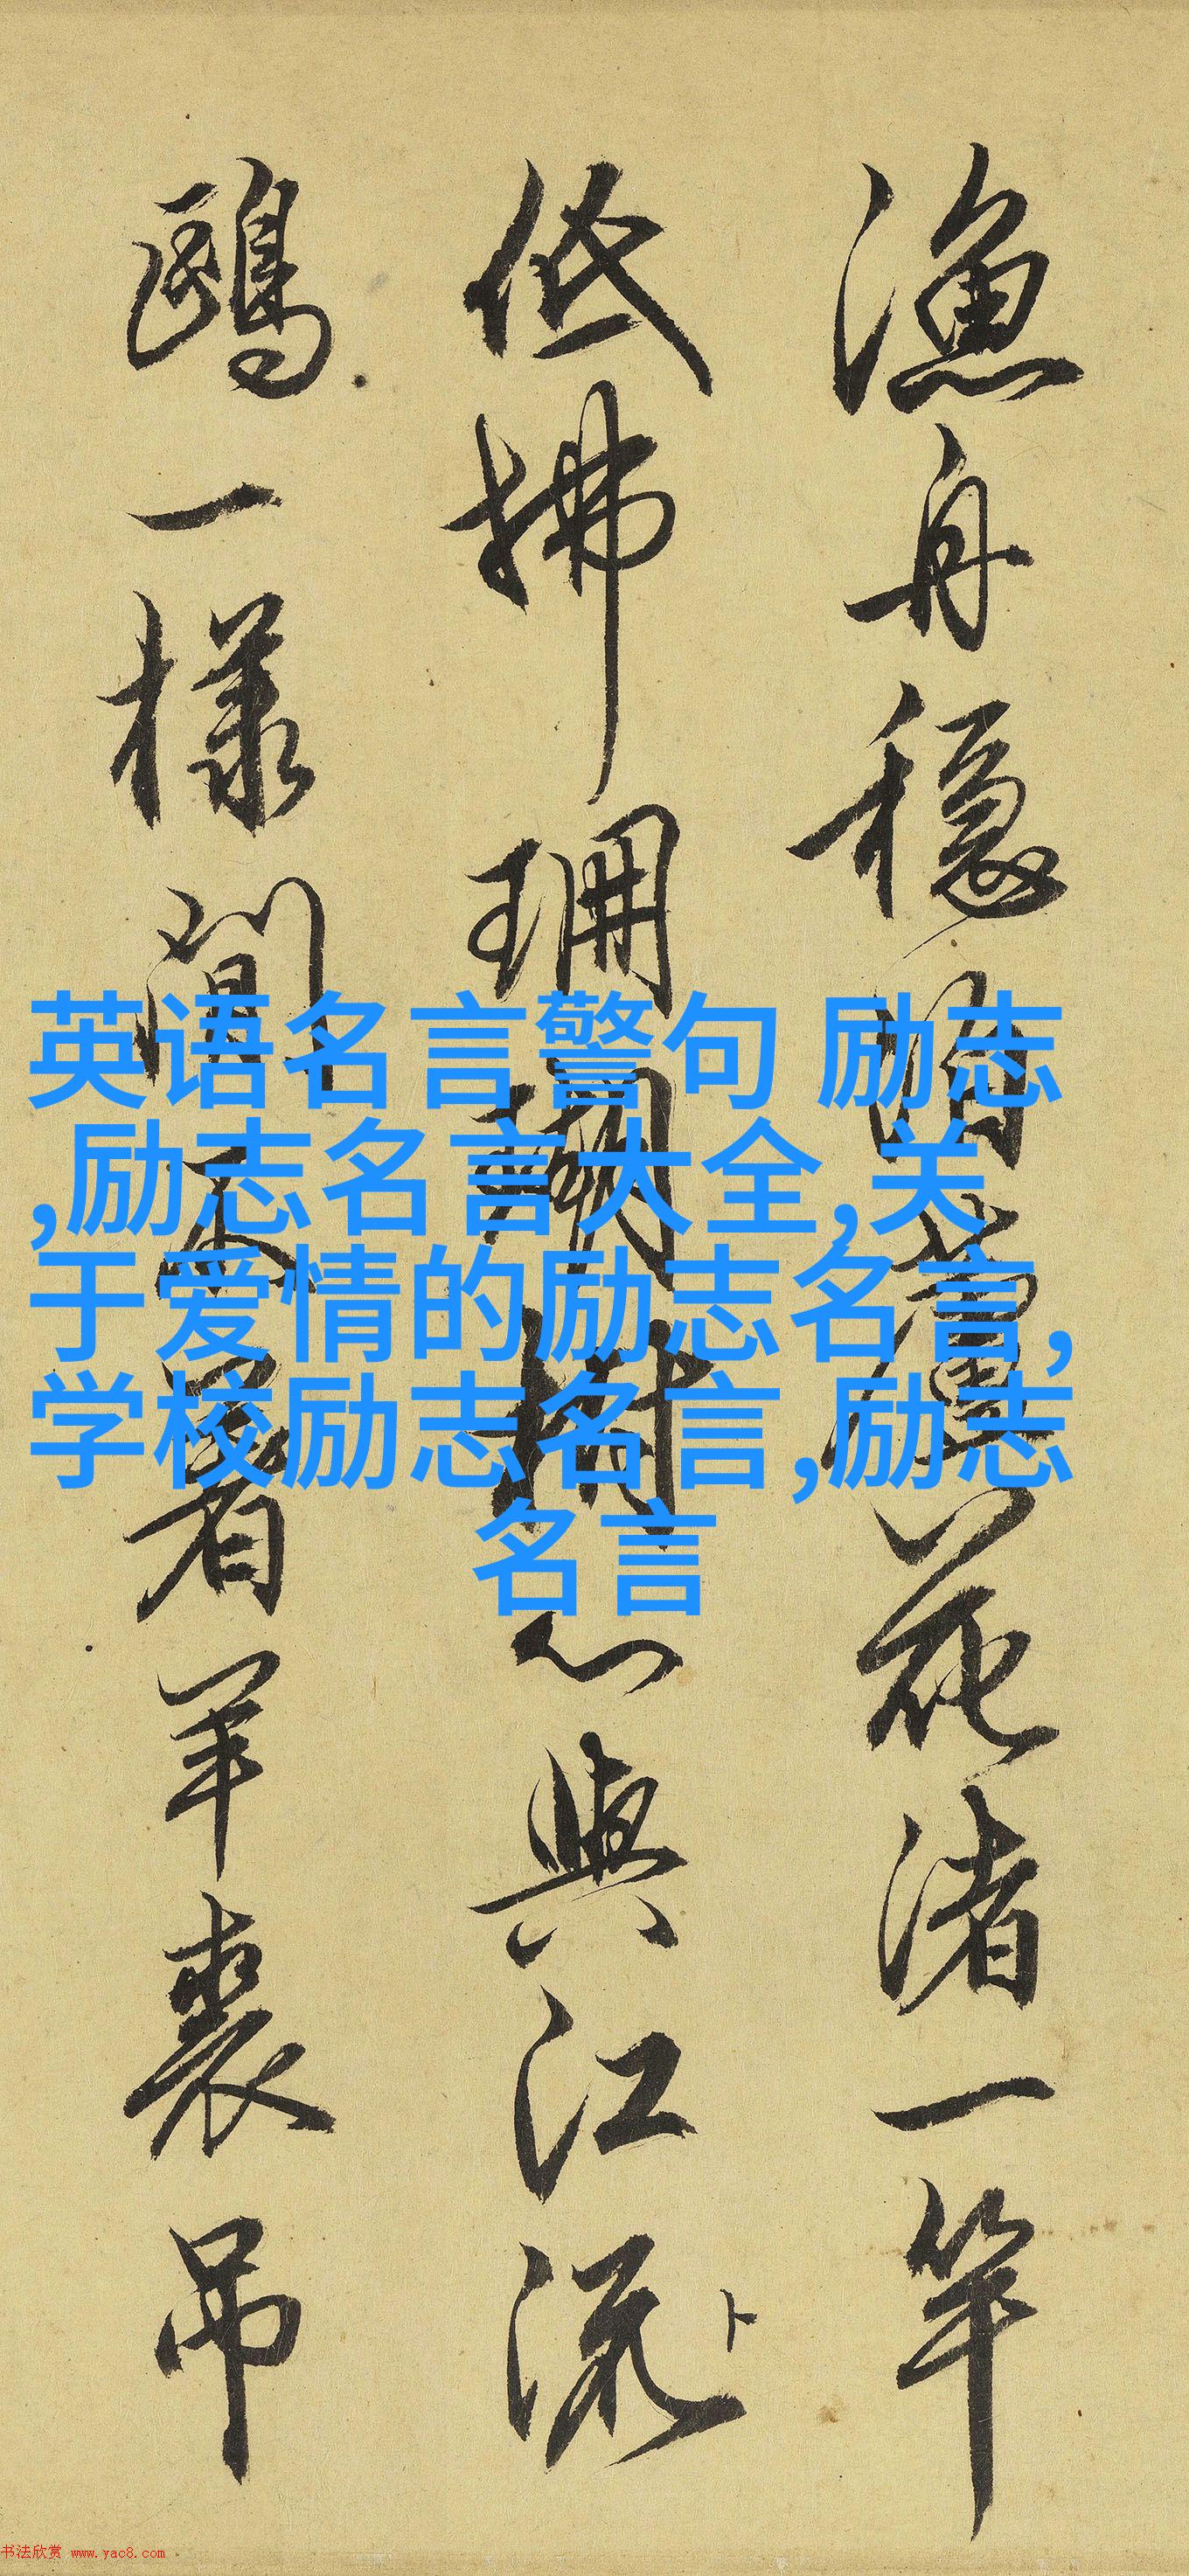 漁舟穩泊蓼花渚一竿
低拂珊瑚樹心與江流
鷗一樣閒不羊裘吊
卜
英语名言警句 励志
,励志名言大全,关
于爱情的励志名言,
学校励志名言,励志
名言
书法欣赏 www.yac8.com